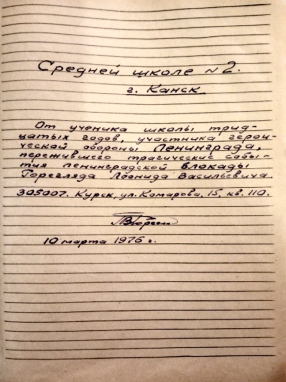 Средней школе №2.
г. Канск.
От ученика школы трид-
цатых годов, участника герои-
ческой обороны Ленинграда,
пережившего трагические собы-
тия ленинградской блокады
Горегляда Леонида Васильевича.
305007. Курск, ул. Комарова, 15, кв. 110.
10 марта 1976 г.